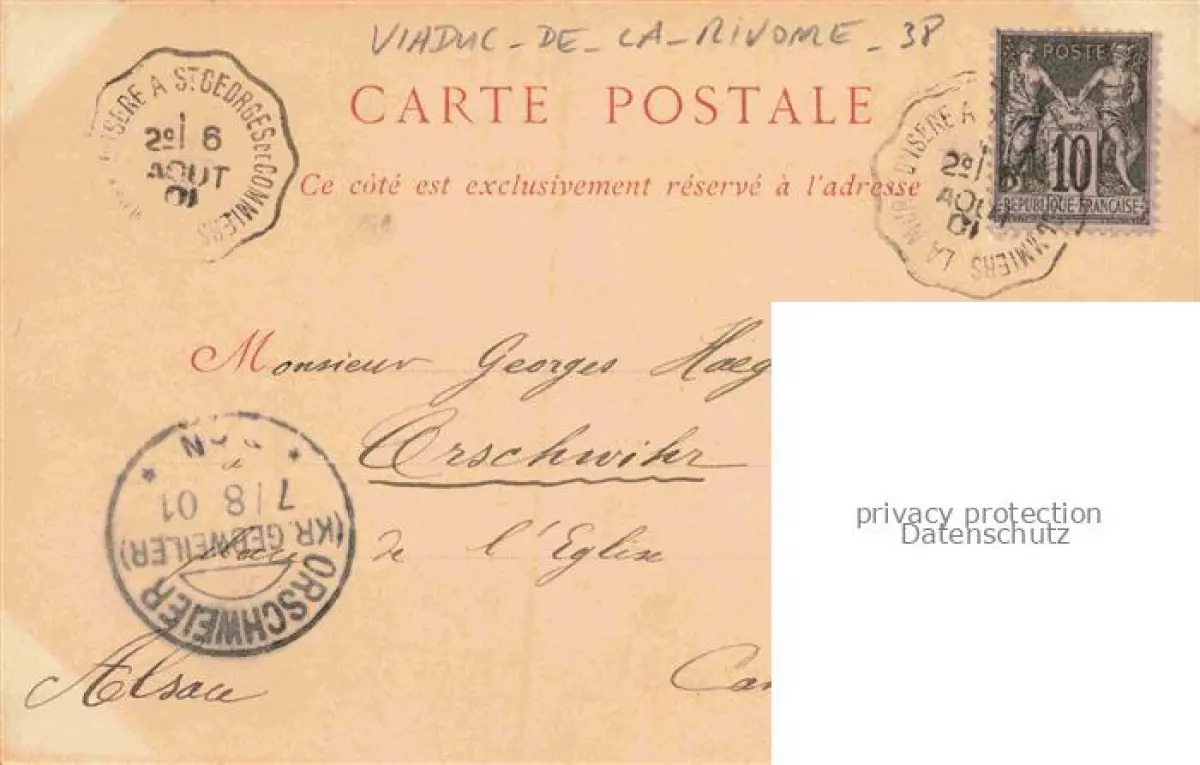 VIADUC-DE-LA-RIVOIRE-38
CARTE POSTALE
Ce côté est exclusivement réservé à l'adresse
ISERE A ST GEORGES DE COMMIERS
2º 6
AOUT
01
POSTE
10
REPUBLIQUE FRANÇAISE
LA MUR D'ISERE A MMIERS
2º
AOU
01
Monsieur Georges Haeg
Orschwihr
de l'Eglise
Alsace
ORSCHWEIER
(KR. GEBWEILER)
7/8 01
N
privacy protection
Datenschutz